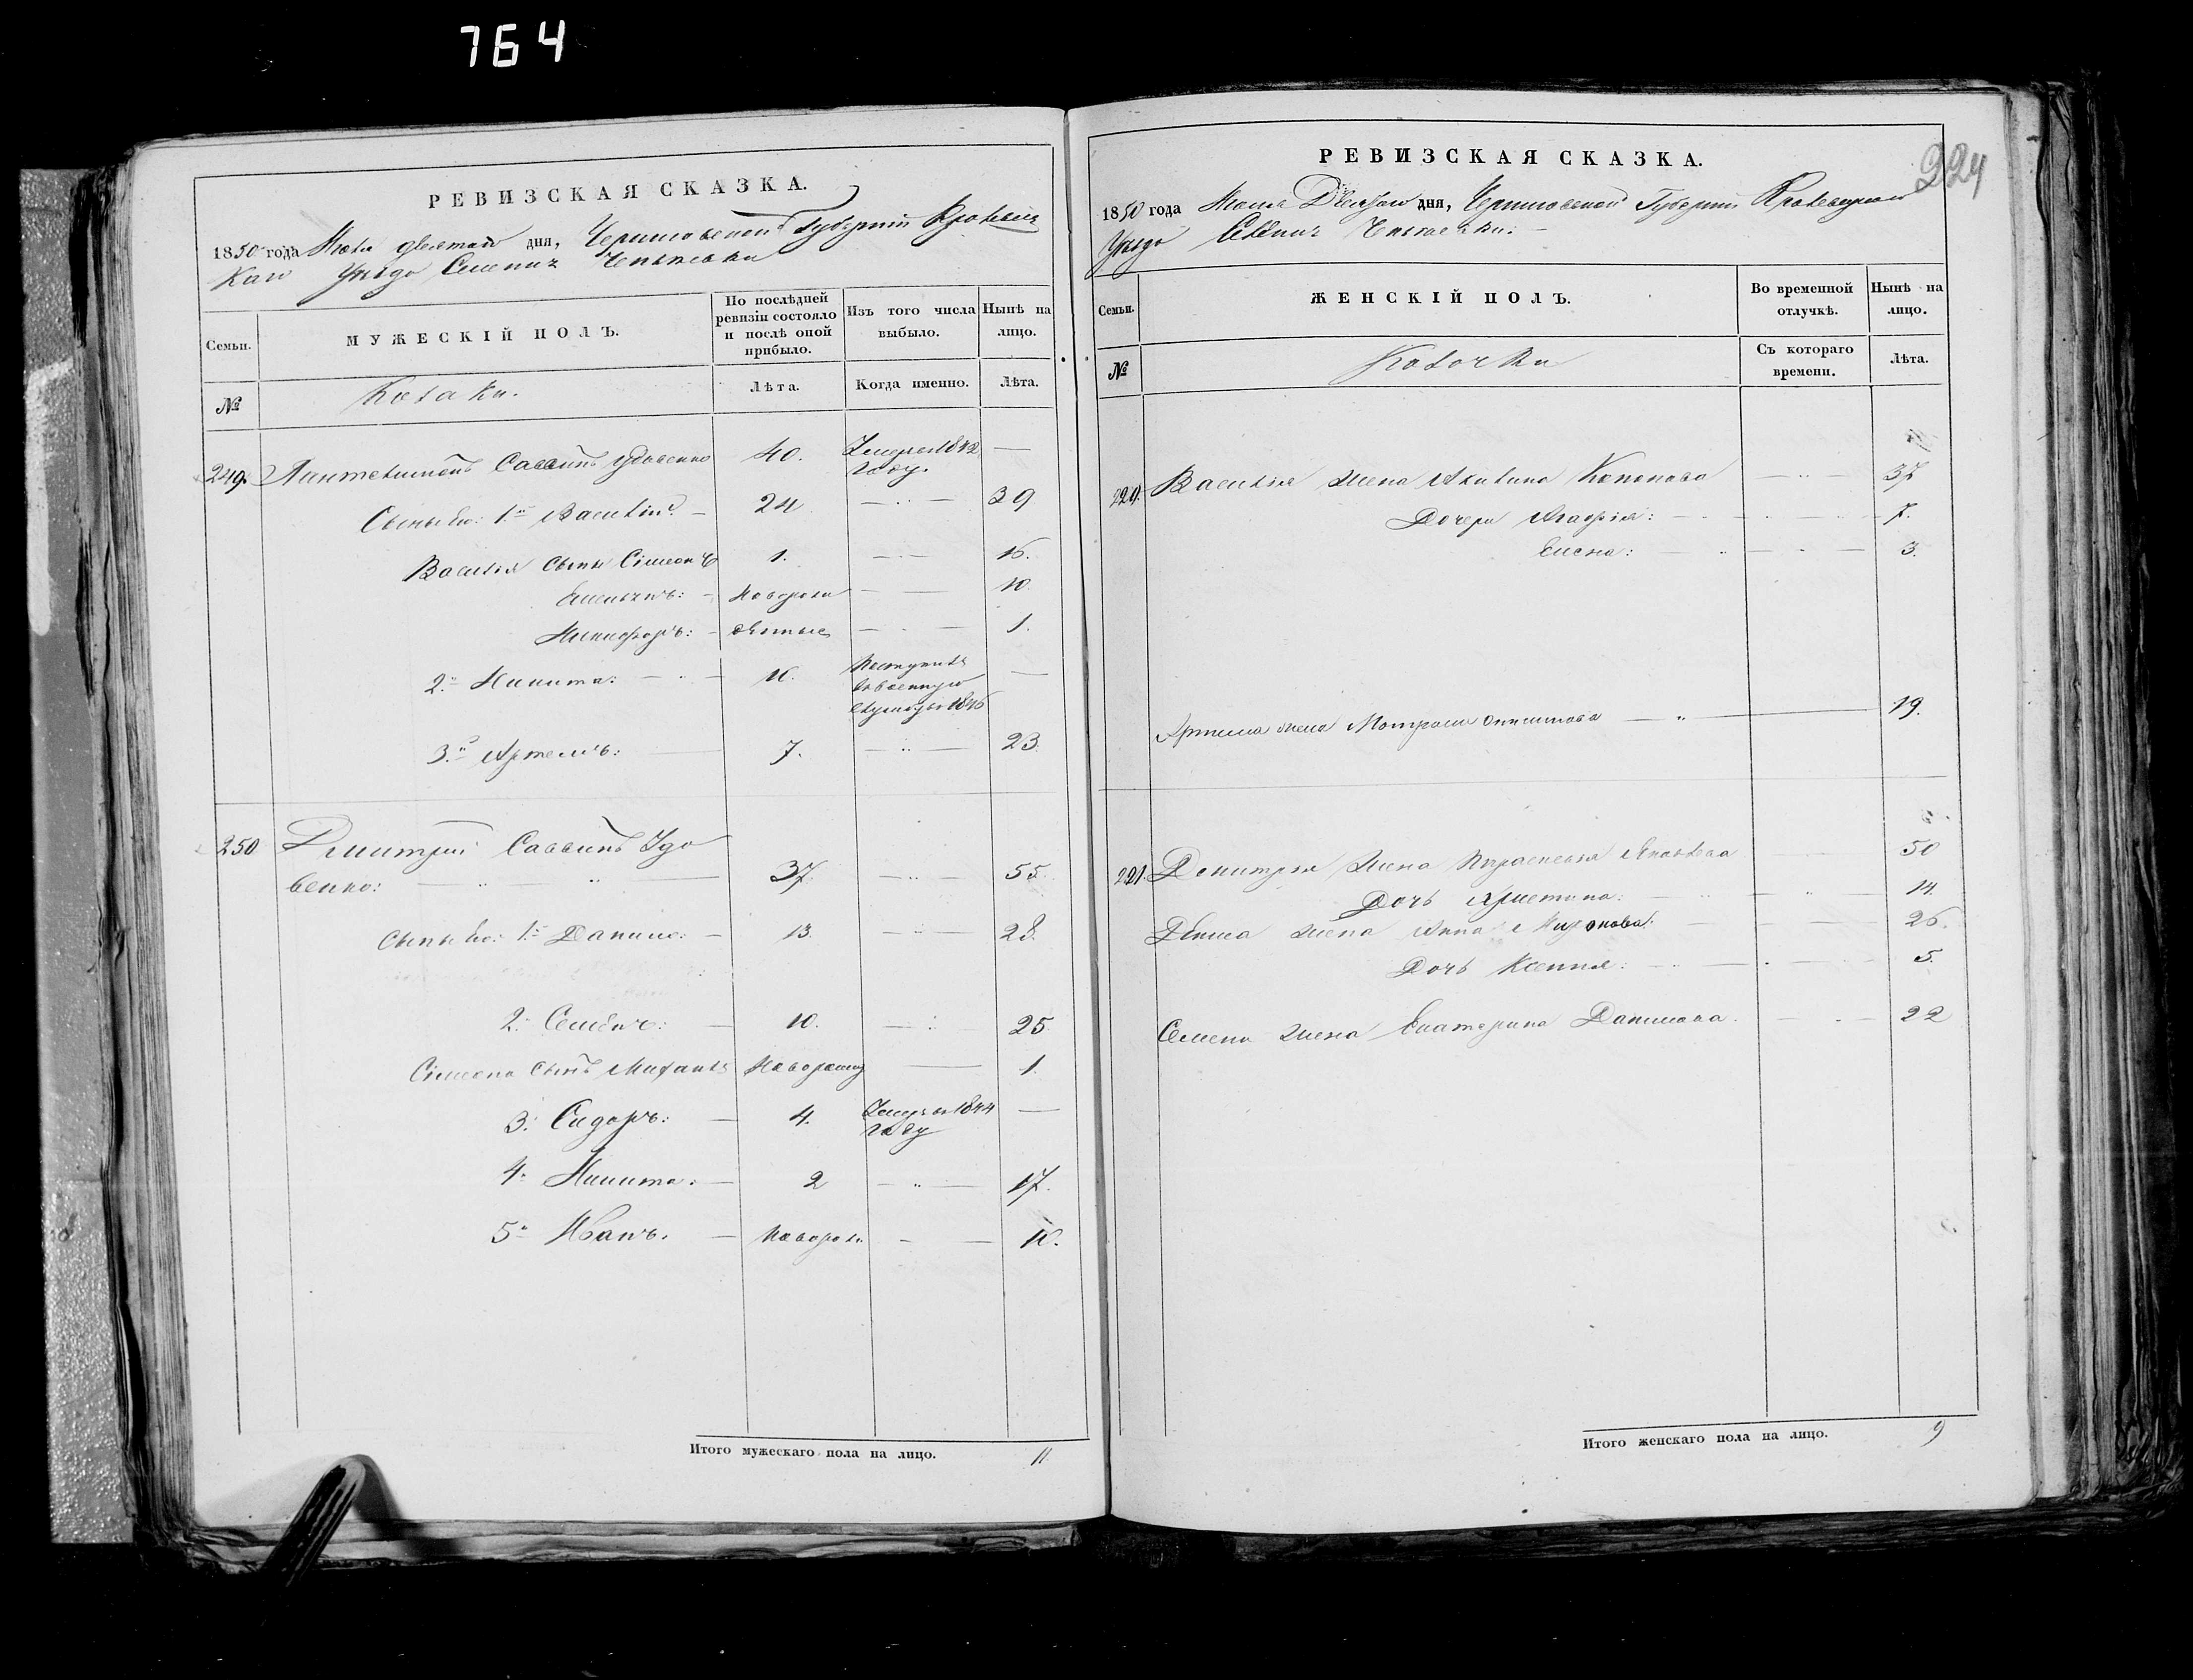 764
РЕВИЗСКАЯ СКАЗКА.
1850 года Июля девятаго дня, Черниговской Губерніи Кролевец
каго Уѣзда Селенія
Семьи.
МУЖЕСКІЙ ПОЛЪ.
По послѣдней ревизіи состояло и послѣ оной прибыло.
Изъ того числа выбыло.
Нынѣ на лицо.
№
Козаки.
Лѣта.
Когда именно.
Лѣта.
249. Пантелимонъ Саввинъ Удовенко 40. Умеръ въ 1842 году. —
Сыны Его: 1й Василій. 24 — 39
Василія сыны Сімеонъ 1. — 16.
Емельянъ: Новорож — 10.
Никифоръ: денные — 1.
2й Никита: 16. Поступилъ въ военную службу 1846 —
3й Артемъ: 7. — 23.
250 Дмитрій Саввинъ Удо
венко: 37. — 55.
Сыны Его: 1й Данило: 13. — 28.
2. Семенъ: 10. — 25.
Сімеона сынъ Михаилъ Новорожд — 1.
3. Сидоръ: 4. Умеръ въ 1844 году —
4. Никита: 2 — 17.
5й Иванъ. Новорож. — 10.
Итого мужескаго пола на лицо. 11
РЕВИЗСКАЯ СКАЗКА.
224
1850 года Июля дня, Черниговской Губерніи Кролевецкаго
Уѣзда
Семьи.
ЖЕНСКІЙ ПОЛЪ.
Во временной отлучкѣ.
Нынѣ на лицо.
№
Козачки
Съ котораго времени.
Лѣта.
Василія жена Акилина Кононова — 37
Дочери Агафія: — 7.
Елена: — 3.
Артема жена Мотрона — 19.
Дмитрія жена Параскевія Яковлева 50
Дочь Христина: — 14.
жена Анна Миронова: — 26.
Дочь Ксенія: — 5.
Семена жена Екатерина Данилова. — 22
Итого женскаго пола на лицо. 9